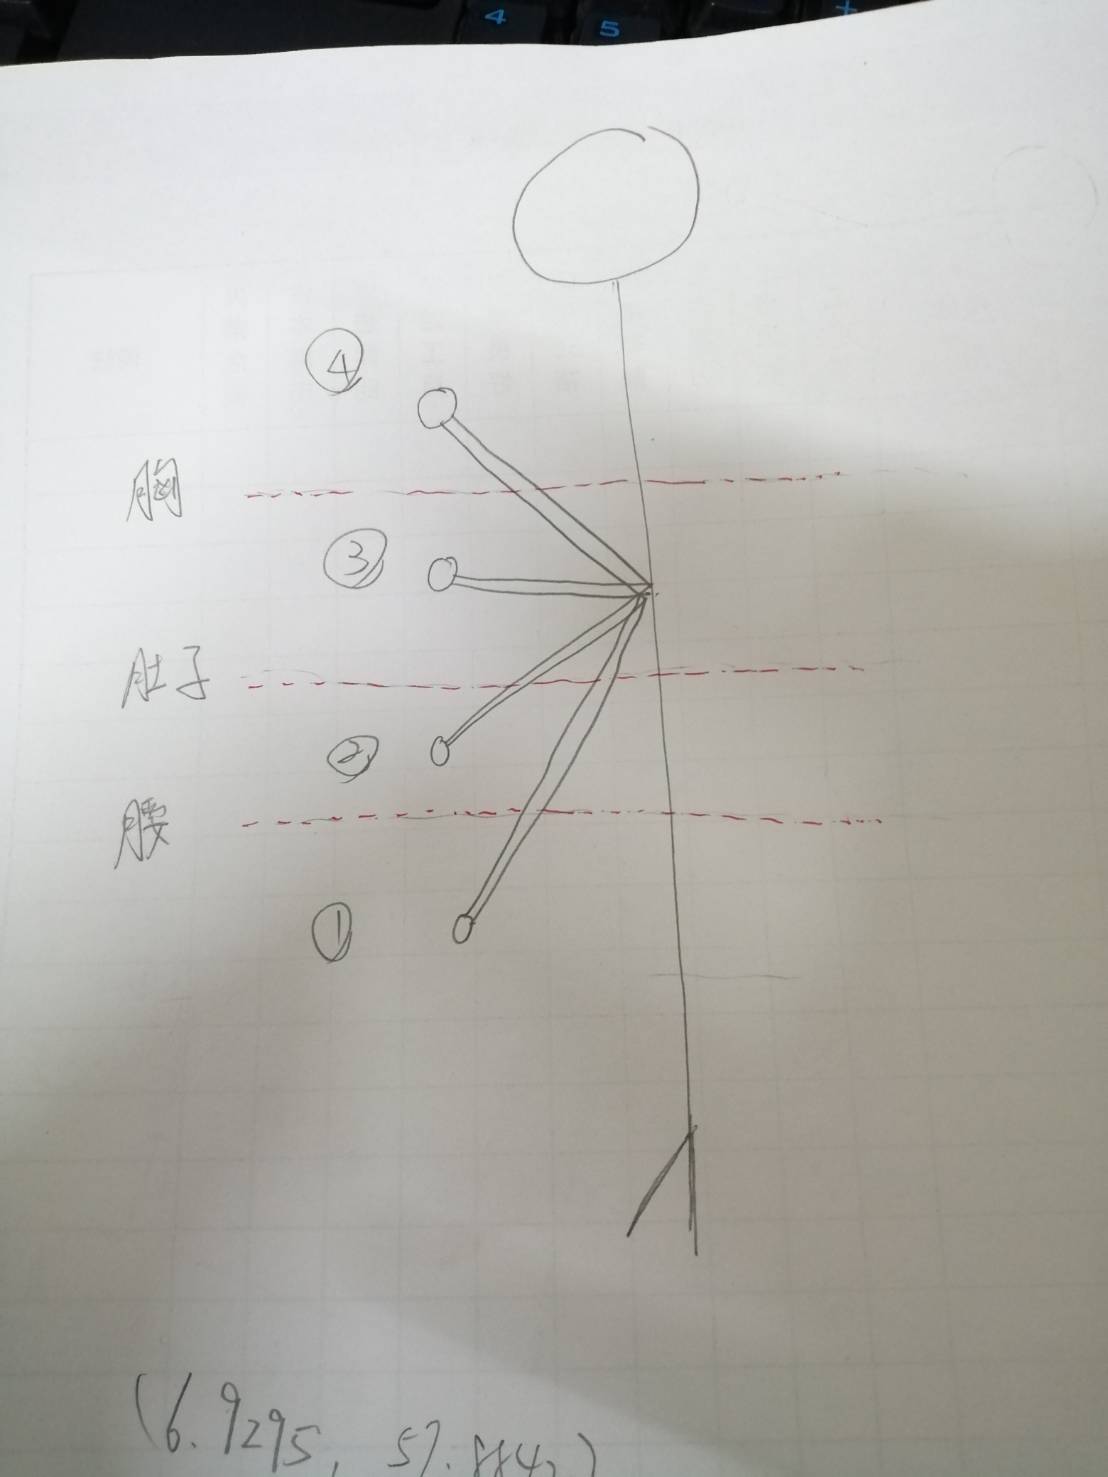 4 5 +
④
胸
③
肚子
②
腰
①
(6.9295, 57.8842)